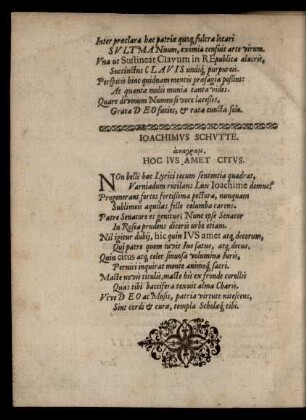 Inter præclara hac patriæ quoq fulcra locari
SVLTMANnum, eximia censuit arte virum.
Vna ut Sustineat Clavum in REpublica alacris,
Succinctus CLAVIS undiq purpureis.
Perspicis hinc quidnam mentis præsagia possint:
At quanta molis munia tanta vides.
Quare divinum Numen si voce lacesses,
Grata DEO facies, & rata cuncta solo.
IOACHIMVS SCHVTTE.
ἀναγραμ.
HOC IVS AMET CITVS.
NOn belle hoc Lyrici tecum sententia quadrat,
Varniadum rutilans Lux Ioachime domus?
Progenerant fortes fortissima pectora, nunquam
Sublimeis aquilas fille columba carens.
Patre Senatore es genitus; Nunc ipse Senator
In Rosea prudens diceris urbe etiam.
Nil igitur dubij, hic quin IVS amet atq decorum,
Qui patre quem juvit Ius satus, atq decus.
Quin citus atq celer sinuosa volumina juris,
Pernici inquirat mente animoq sacri.
Macte novis titulis, macte his ex fronde corollis
Quas tibi baccifera texuit alma Charis.
Vive DEO ac Musis, patria virtute nitescens,
Sint cordi & curæ, templa Scholæq tibi.